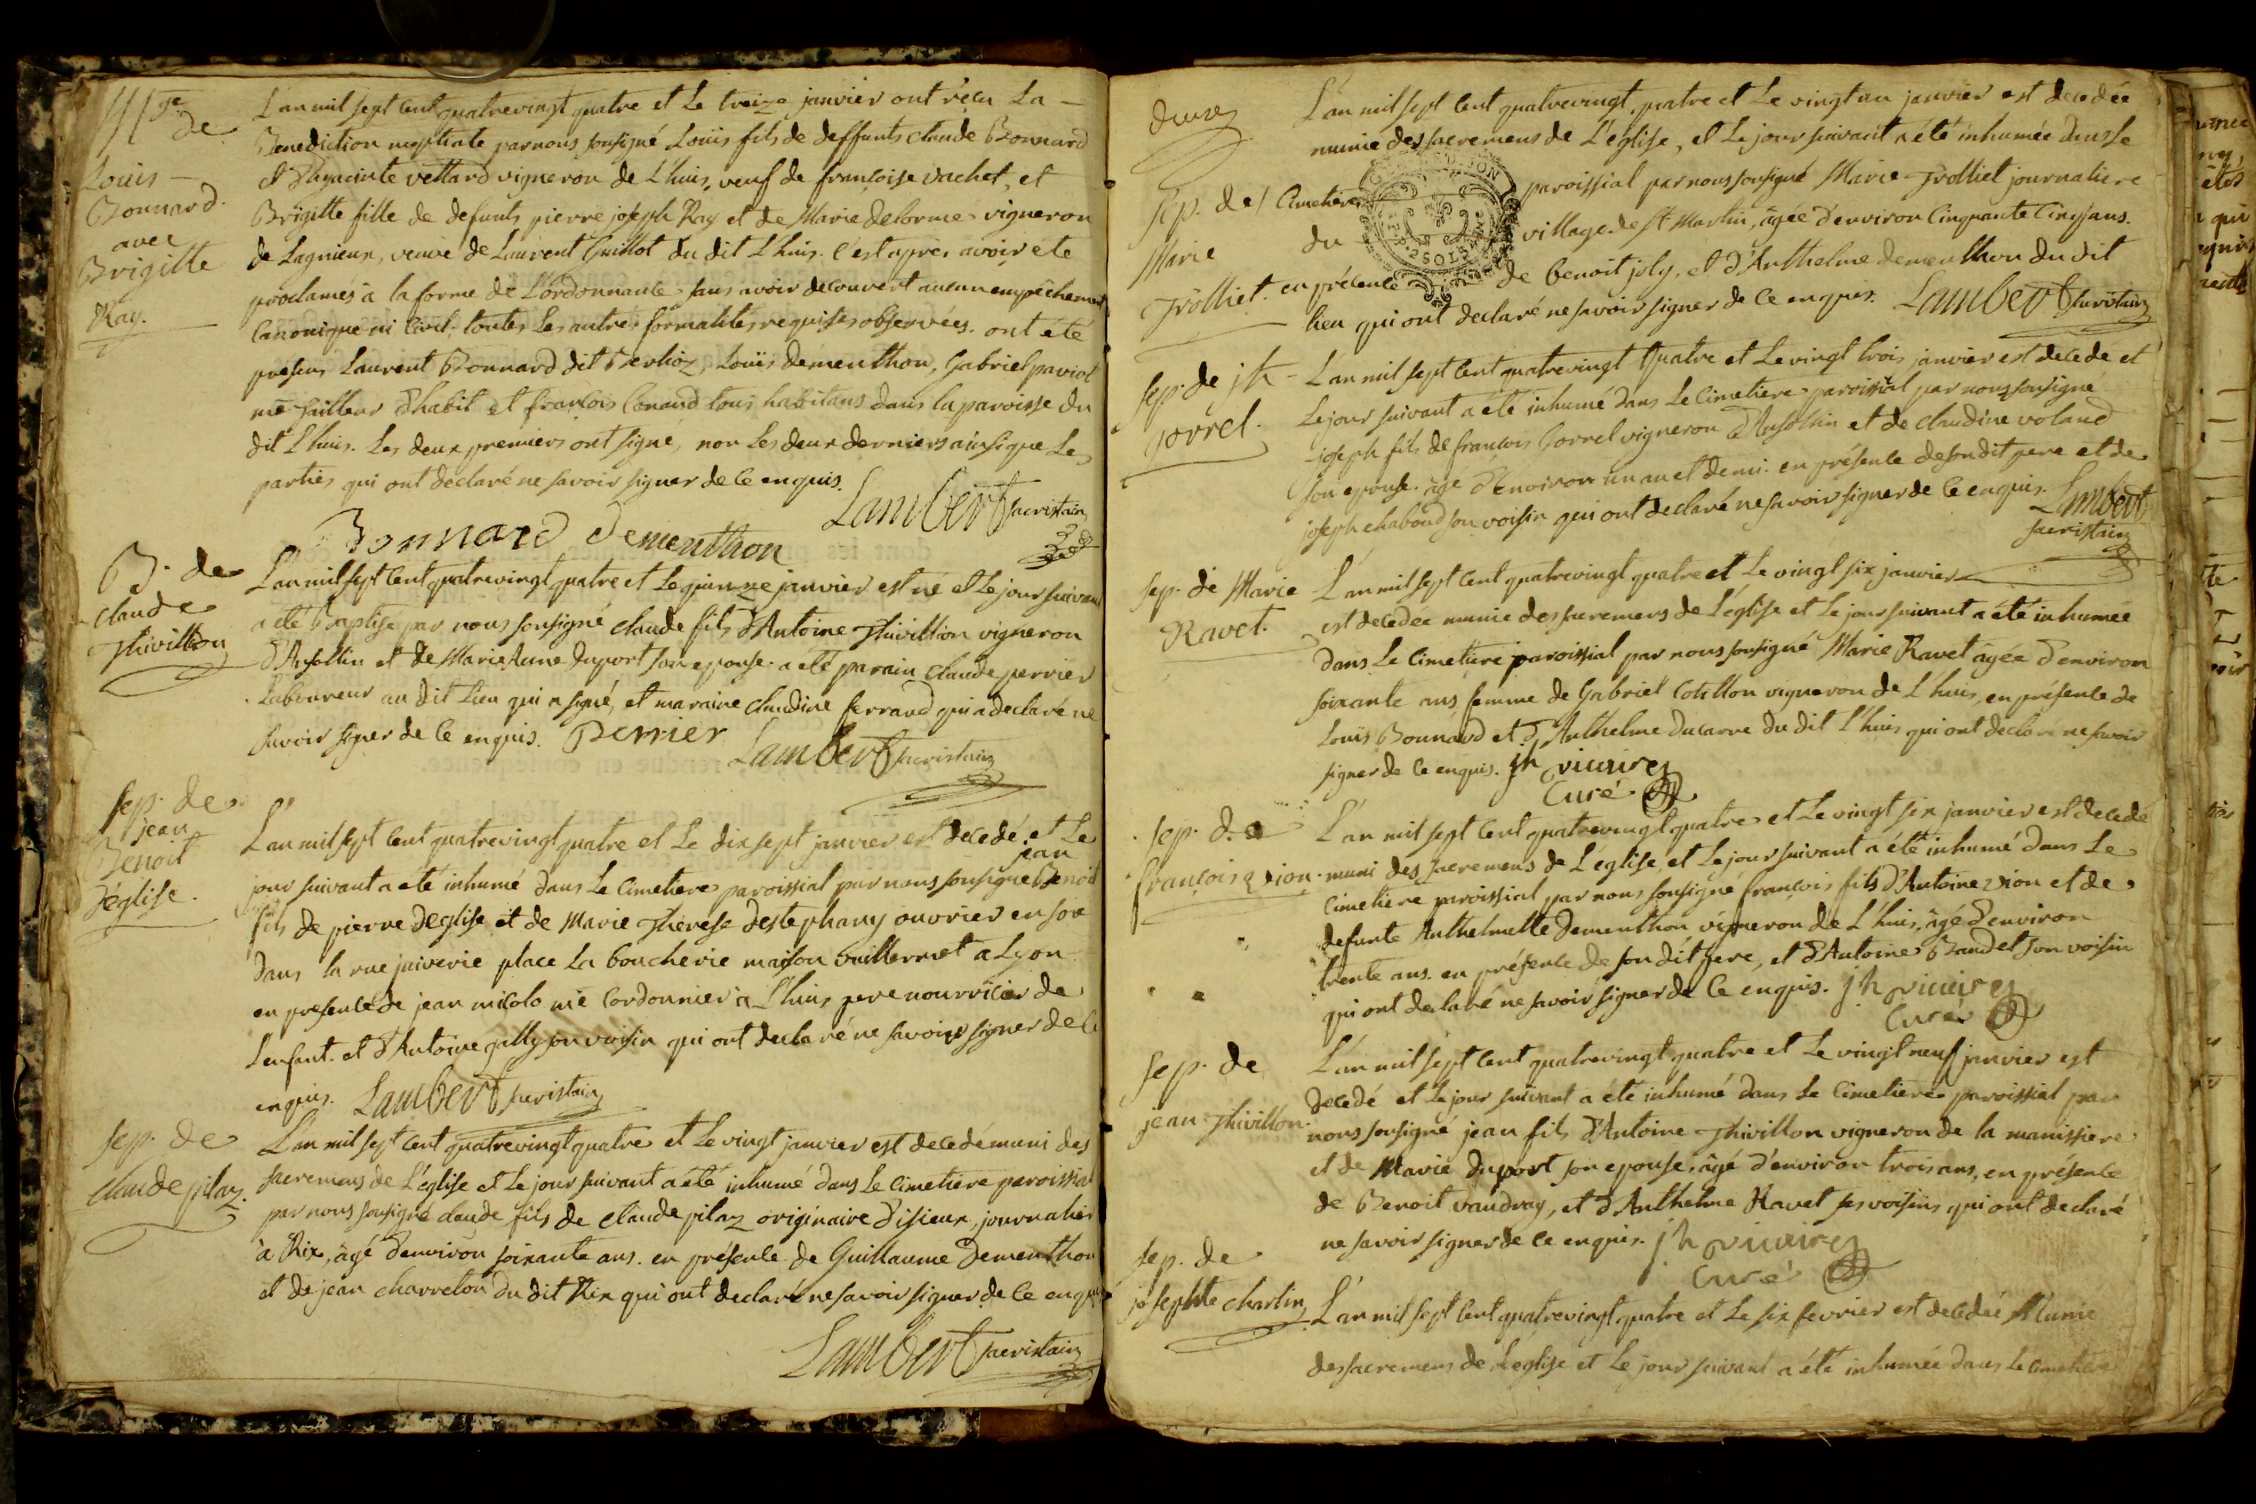 M.ge de
Louis
Bonnard
avec
Brigitte
Ray.
L'an mil sept cent quatrevingt quatre et le treize janvier ont recu La
Benediction nuptiale par nous sousigné Louis fils de deffunts claude Bonnard
et d'hyacinte vettard vigneron de L'huis, veuf de françoise vachet, et
Brigitte fille de defunts pierre joseph Ray et de Marie delorme vigneron
de Lagnieux, veuve de Laurent Guillot du dit L'huis. c'est apres avoir ete
proclamés a la forme de L'ordonnance sans avoir decouvert aucun empechement
Canonique ni Civil. toutes les autres formalites requises observées. ont été
presens Laurent Bonnard dit Berlioz, Louis dementhon, Gabriel paviot
me tailleur d'habit et francois Conand tous habitans dans la paroisse du
dit L'huis. Les deux premiers ont signé, non les deux derniers ainsi que les
parties qui ont déclaré ne savoir signer de ce enquis.
Lambert sacristain
Bonnard Dementhon
B. de
claude
Thivillon
L'an mil sept cent quatrevingt quatre et le quinze janvier est né et le jour suivant
a été Baptisé par nous sousigné claude fils d'Antoine Thivillion vigneron
d'Ansollin et de Marie Anne Duport son epouse. a été parain claude perrier
Laboureur au dit Lieu qui a signé, et maraine claudine ferrand qui a declaré ne
savoir signer de ce enquis. Perrier
Lambert sacristain
sep. de
jean
Benoit
D'église.
L'an mil sept cent quatrevingt quatre et le dix sept janvier est decedé et le
jean
jour suivant a été inhumé dans le cimetiere paroissial par nous sousigné Benoit
fils de pierre Deglise et de Marie Therese Destephany ouvrier en soie
dans la rue juiverie place la boucherie maison Guillermet a Lyon
en presence de jean micolo me Cordonnier a L'huis pere nourricier de
L'enfant. et d'Antoine gally son voisin qui ont declaré ne savoir signer de ce
enquis. Lambert sacristain
sep. de
claude pilaz.
L'an mil sept cent quatrevingt quatre et le vingt janvier est decedé muni des
sacremens de L'église et le jour suivant a été inhumé dans le cimetiere paroissial
par nous sousigné claude fils de claude pilaz originaire d'isieux, journalier
à Rix, âgé d'environ soixante ans. en présence de Guillaume Dementhon
et de jean charreton du dit Rix qui ont declaré ne savoir signer de ce enquis
Lambert sacristain
deuxe
sep. de
Marie
Trolliet.
L'an mil sept cent quatrevingt quatre et le vingt un janvier est decedée
munie des sacremens de L'église, et le jour suivant a été inhumée dans le
Cimetiere paroissial par nous sousigné Marie Trolliet journaliere
du village de St Martin, âgée d'environ cinquante cinq ans.
en présence de benoit joly, et d'Anthelme dementhon du dit
lieu qui ont declaré ne savoir signer de ce enquis. Lambert sacristain
sep. de jh
Gorrel.
L'an mil sept cent quatrevingt quatre et le vingt trois janvier est decedé et
le jour suivant a été inhumé dans le cimetiere paroissial par nous sousigné
joseph fils de françois Gorrel vigneron d'Ansollin et de claudine voland
son epouse. âgé d'environ un an et demi. en présence de son dit pere et de
joseph chaboud son voisin qui ont declaré ne savoir signer de ce enquis. Lambert
sacristain
sep. de Marie
Ravet.
L'an mil sept cent quatrevingt quatre et le vingt six janvier
est decedée munie des sacremens de L'église et le jour suivant a été inhumée
dans le cimetiere paroissial par nous sousigné Marie Ravet âgée d'environ
soixante ans, femme de Gabriel Cotillon vigneron de L'huis, en présence de
Louis Bonnard et d'Anthelme Ducarre du dit L'huis qui ont declaré ne savoir
signer de ce enquis. jh vicaire
Curé
sep. de
françois Zion.
L'an mil sept cent quatrevingt quatre et le vingt six janvier est decedé
muni des sacremens de L'église, et le jour suivant a été inhumé dans le
cimetiere paroissial par nous sousigné françois fils d'Antoine Zion et de
defunte Anthelmette Dementhon vigneron de L'huis, âgé d'environ
trente ans. en présence de son dit pere, et d'Antoine Baudet son voisin
qui ont declaré ne savoir signer de ce enquis. jh
Curé
sep. de
jean Thivillon
L'an mil sept cent quatrevingt quatre et le vingt neuf janvier est
decedé et le jour suivant a été inhumé dans le cimetiere paroissial par
nous sousigné jean fils d'Antoine Thivillon vigneron de la manissiere
et de Marie Duport son epouse, âgé d'environ trois ans, en présence
de Benoit vaudray, et d'Anthelme Ravet ses voisins qui ont declaré
ne savoir signer de ce enquis. jh
Curé
sep. de
josephte charlin
L'an mil sept cent quatrevingt quatre et le six fevrier est decedée Munie
des sacremens de L'église et le jour suivant a été inhumée dans le cimetiere